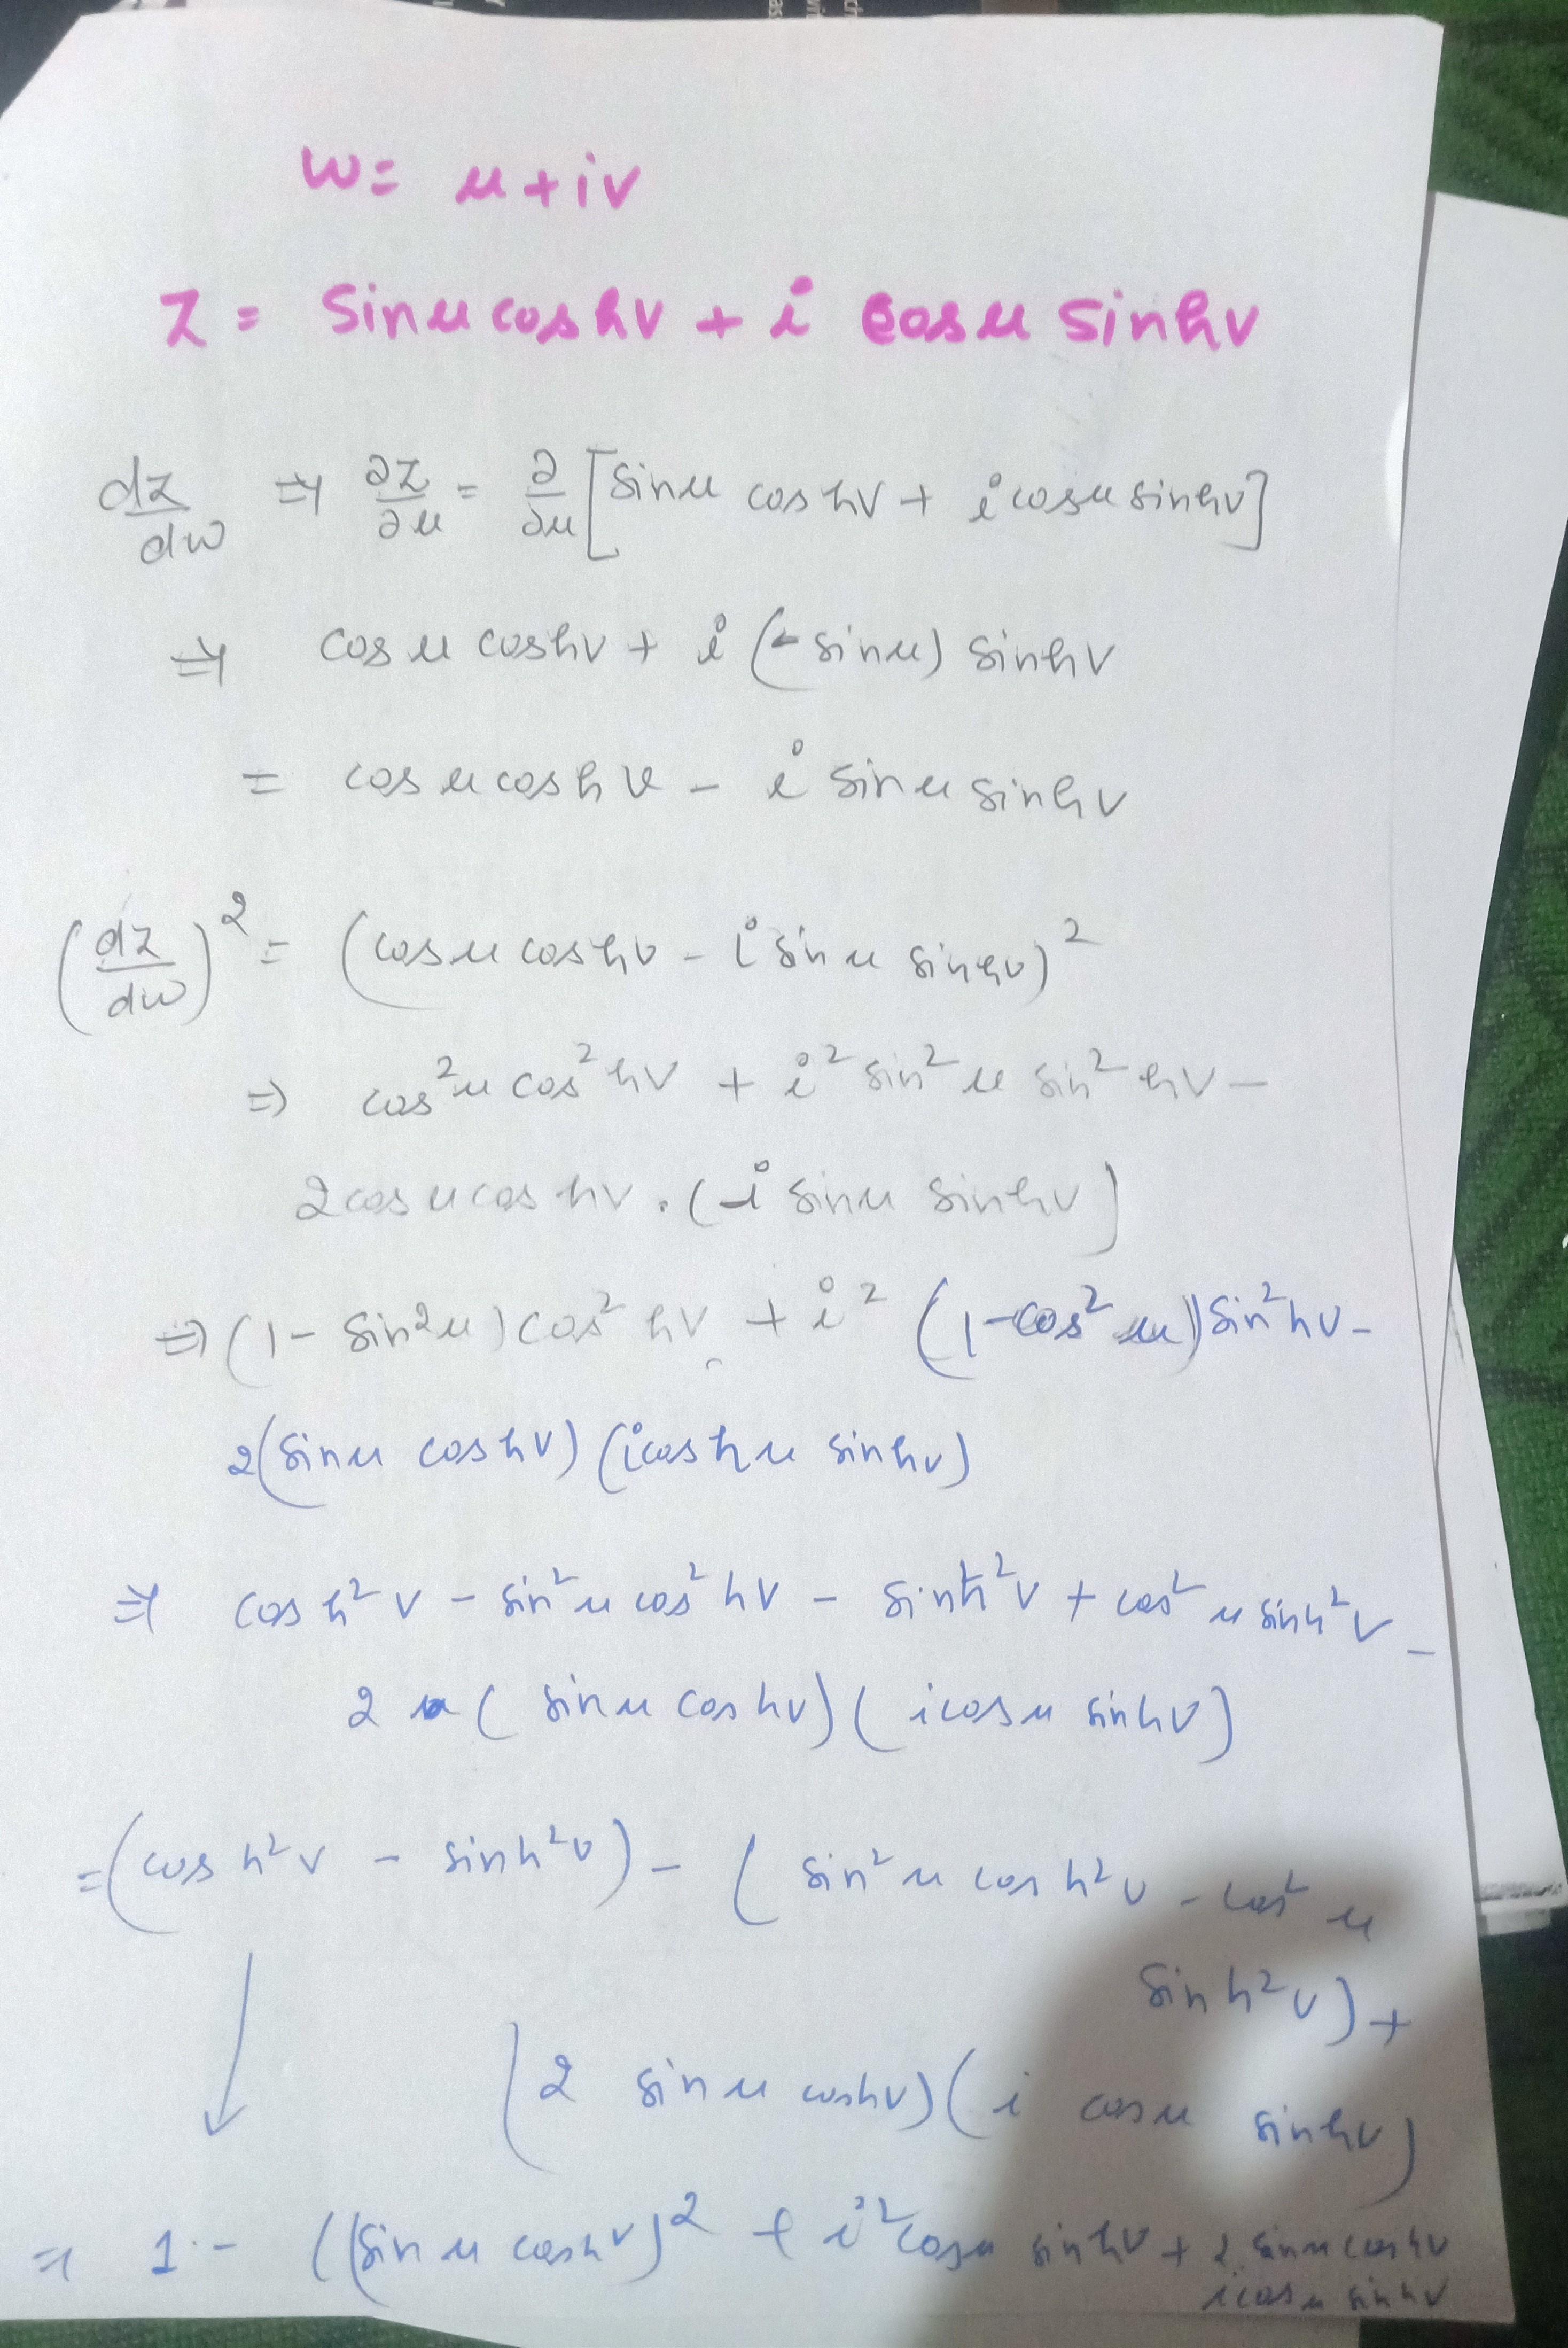 w = u + iv
z = sin u cos hv + i cos u sin hv
dz/dw ⇒ ∂z/∂u = ∂/∂u [sin u cos hv + i cos u sin hv]
⇒ cos u cos hv + i (- sin u) sin hv
= cos u cos h v - i sin u sin h v
(dz/dw)² = (cos u cos hv - i sin u sin hv)²
⇒ cos² u cos² hv + i² sin² u sin² hv -
2 cos u cos hv . (i sin u sin hv)
⇒ (1 - sin² u) cos² hv + i² (1 - cos² u) sin² hv -
2 (sin u cos hv) (i cos h u sin hv)
⇒ cos h² v - sin² u cos² hv - sin h² v + cos² u sin h² v -
2 ( sin u cos hv) ( i cos u sin hv )
= (cos h² v - sin h² v) - ( sin² u cos h² v - cos² u
sin h² v) +
(2 sin u cos hv) ( i cos u sin hv )
⇒ 1 - ((sin u cos hv)² + i² cos u sin hv + 2 sin u cos hv
i cos u sin hv